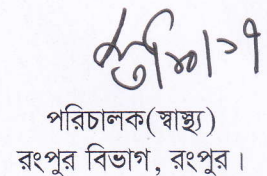 পরিচালক(স্বাস্থ্য)
রংপুর বিভাগ, রংপুর।